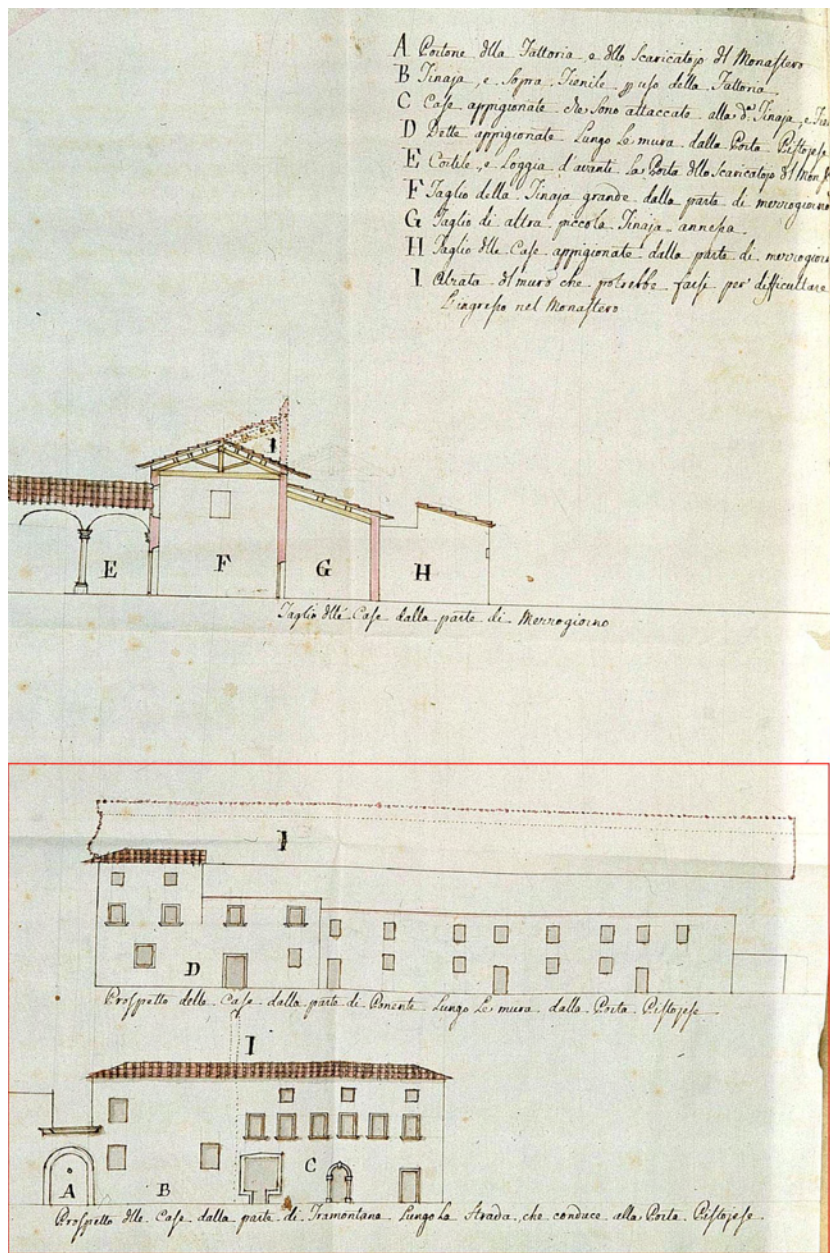 A Portone dlla Fattoria, e dllo Scaricatojo dl Monastero
B Tinaja, e Sopra Fienile p uso della Fattoria
C Case appigionate che sono attaccate alla d.ª Tinaja, e Fie
D Dette appigionate Lungo Le mura dalla Porta Pistojese
E Cortile, e Loggia d'avanti la Porta dllo Scaricatojo dl Mon
F Taglio della Tinaja grande dalla parte di mezzogiorno
G Taglio di altra piccola Tinaja annessa
H Taglio dlle Case appigionate dalla parte di mezzogiorn
I Alzata dl muro che potrebbe farsi per difficultare
L'ingresso nel Monastero
I
E F G H
Taglio dlle Case dalla parte di Mezzogiorno
I
D
Prospetto delle Case dalla parte di Ponente Lungo Le mura dalla Porta Pistojese
I
A B C
Prospetto dlle Case dalla parte di Tramontana Lungo La Strada, che conduce alla Porta Pistojese